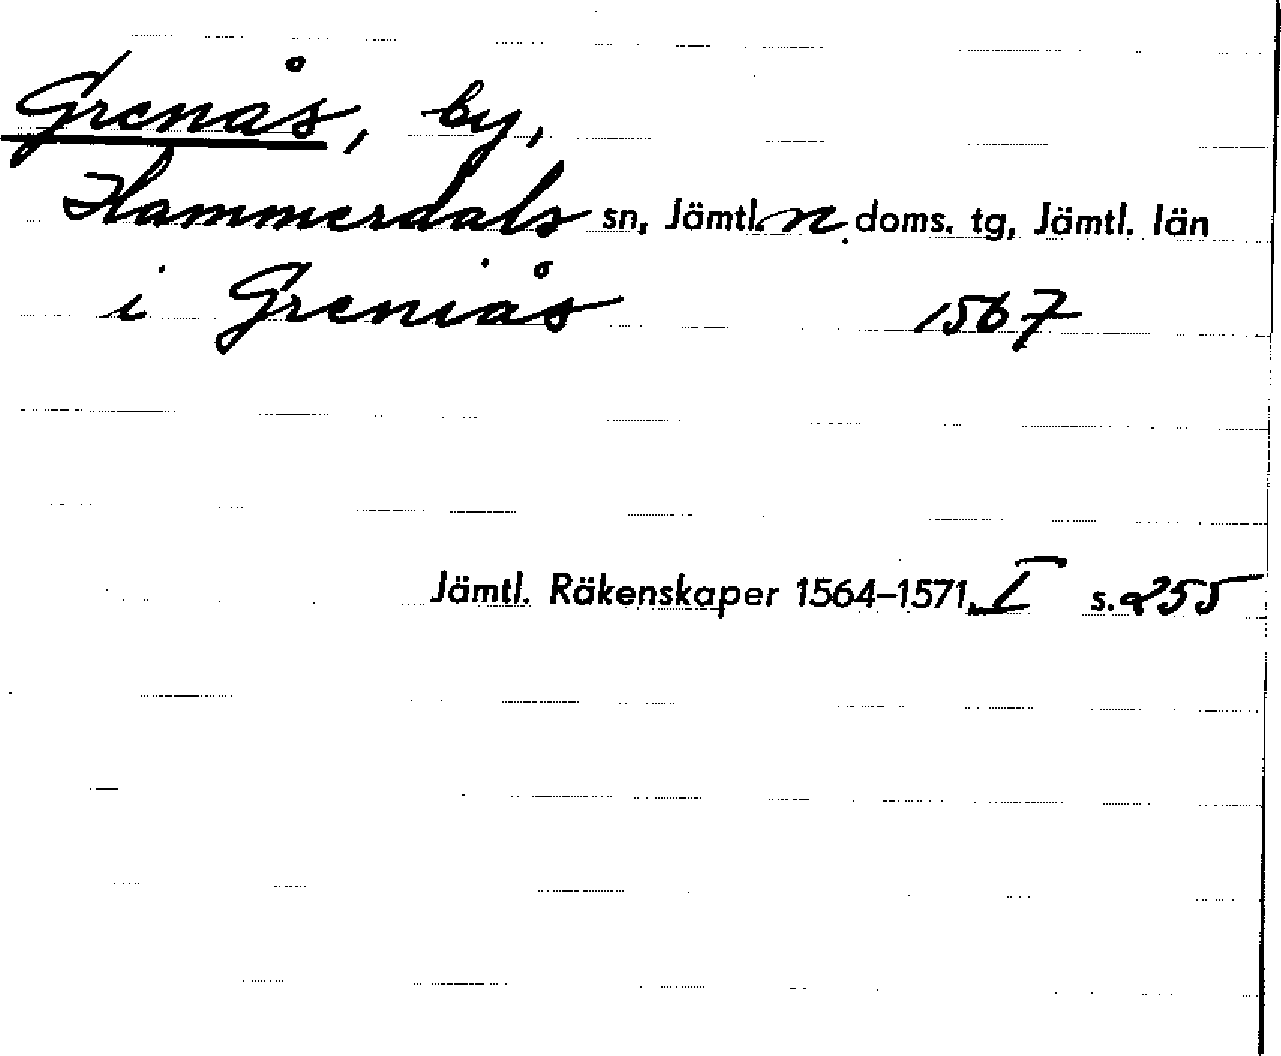 Grenås, by,
Hammerdals sn, Jämtl. n. doms. tg, Jämtl. län
i Greniås 1567
Jämtl. Räkenskaper 1564–1571, I s. 255